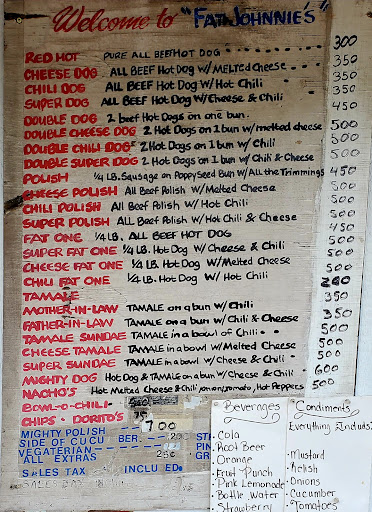 Welcome to "FAT JOHNNIE'S"
RED HOT PURE ALL BEEF HOT DOG 300
CHEESE DOG ALL BEEF HOT DOG W/MELTED CHEESE 350
CHILI DOG ALL BEEF HOT DOG W/HOT CHILI 350
SUPER DOG ALL BEEF HOT DOG W/CHEESE & CHILI 350
DOUBLE DOG 2 beef Hot Dogs on one bun. 450
DOUBLE CHEESE DOG 2 Hot Dogs on 1 bun w/melted cheese 500
DOUBLE CHILI DOG 2 Hot Dogs on 1 bun w/ Chili 500
DOUBLE SUPER DOG 2 Hot Dogs on 1 bun w/ Chili & Cheese 500
POLISH 1/4 LB. Sausage on Poppy Seed Bun W/All the Trimmings 450
CHEESE POLISH All Beef Polish W/Melted Cheese 500
CHILI POLISH All Beef Polish W/ Hot Chili 500
SUPER POLISH ALL Beef Polish W/Hot Chili & Cheese 500
FAT ONE 1/4 LB. ALL BEEF HOT DOG 450
SUPER FAT ONE 1/4 LB. Hot Dog W/ Cheese & Chili 500
CHEESE FAT ONE 1/4 LB. Hot Dog W/Melted Cheese 500
CHILI FAT ONE 1/4 LB. Hot Dog W/ Hot Chili 500
TAMALE 200
MOTHER-IN-LAW TAMALE on a bun w/ Chili 350
FATHER-IN-LAW TAMALE on a bun w/ Chili & Cheese 350
TAMALE SUNDAE TAMALE in a bowl of Chili 500
CHEESE TAMALE TAMALE in a bowl w/ Melted Cheese 500
SUPER SUNDAE TAMALE in a bowl w/ Cheese & Chili 500
MIGHTY DOG Hot Dog & TAMALE on a bun w/ Cheese & Chili 600
NACHO'S Hot Melted Cheese & Chili, onion, tomato, Hot Peppers 500
BOWL-O-CHILI
CHIPS - DORITO'S 75
MIGHTY POLISH 700
SIDE OF CUCUMBER
VEGATERIAN
ALL EXTRAS
SALES TAX INCLUDED
Beverages
Cola
Root Beer
Orange
Fruit Punch
Pink Lemonade
Bottle Water
Strawberry
Condiments
Mustard
Relish
Onions
Cucumber
Tomatoes